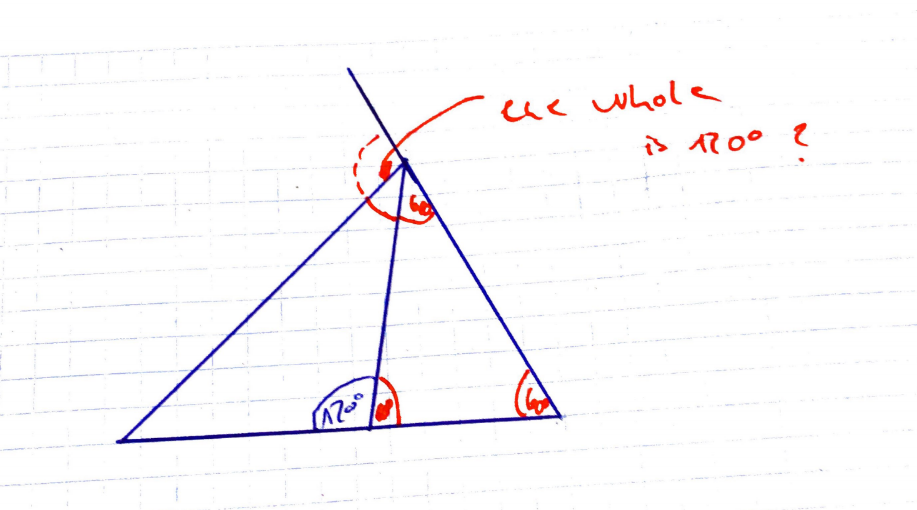 the whole
is 120° ?
60°
120°
60°